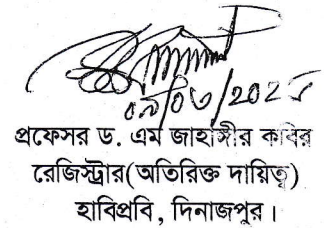 ০৯/০৩/2025
প্রফেসর ড. এম জাহাঙ্গীর কবির
রেজিস্ট্রার(অতিরিক্ত দায়িত্ব)
হাবিপ্রবি, দিনাজপুর।